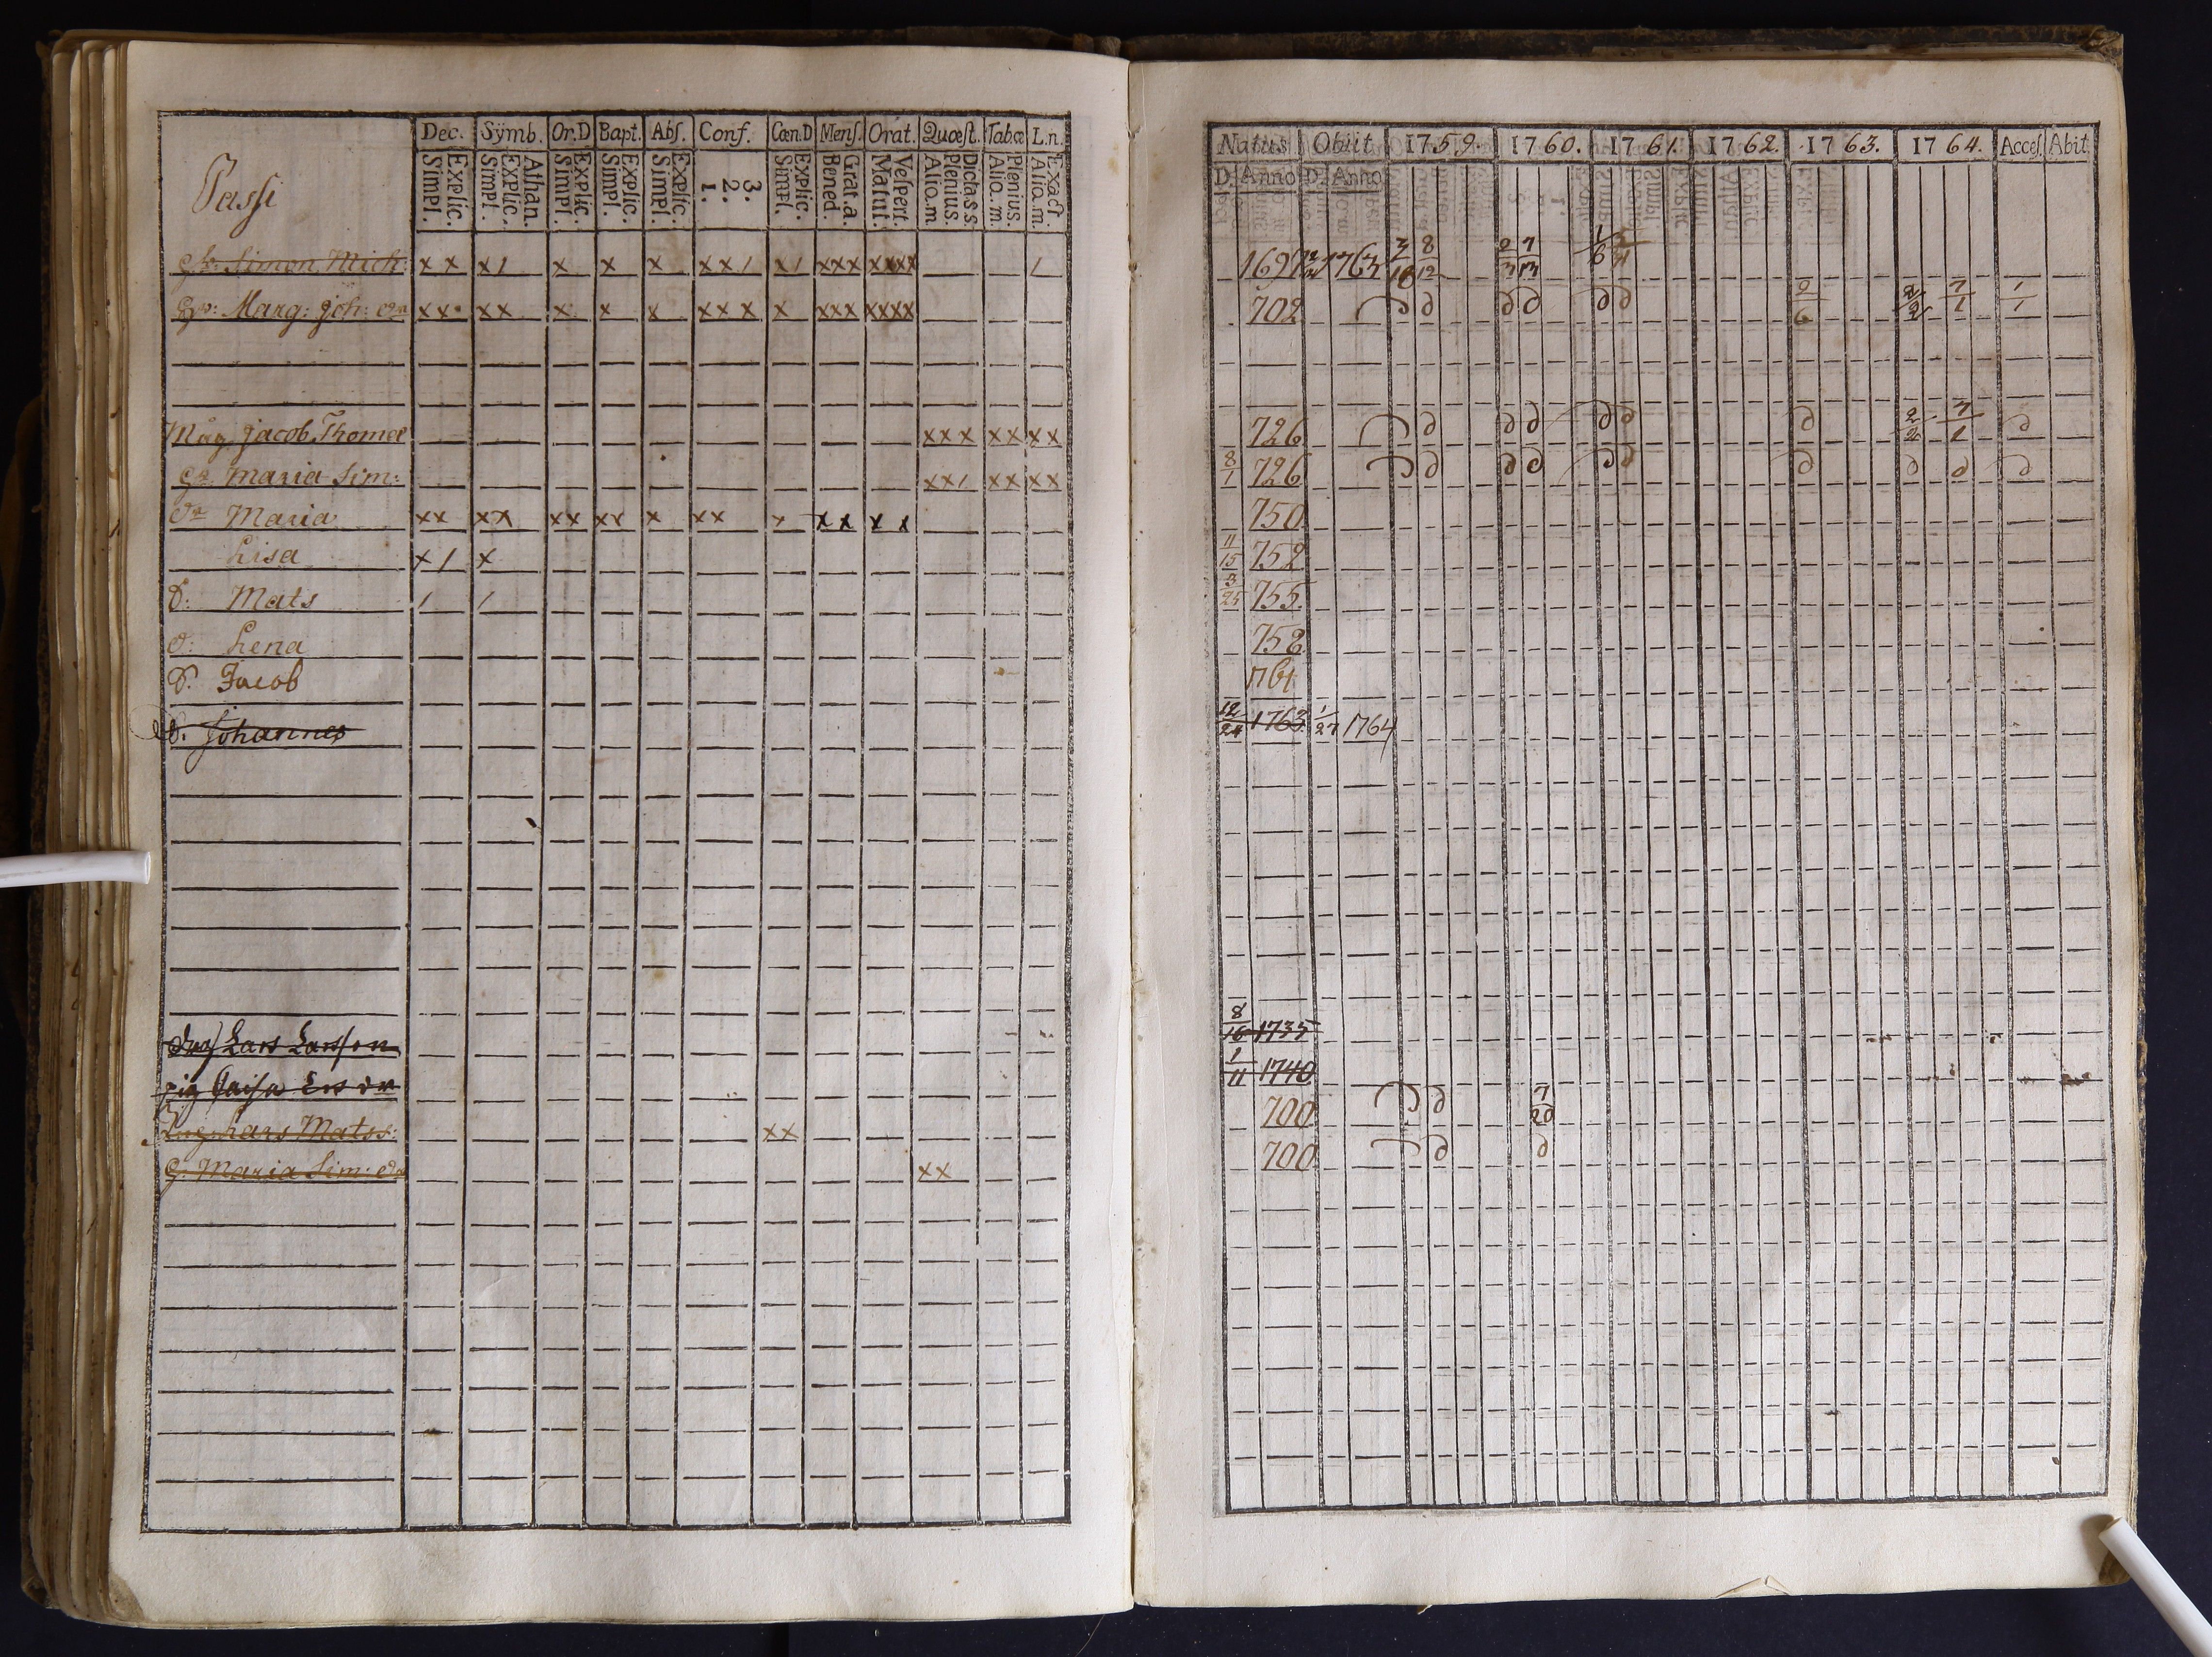 Dec. Symb. Or.D Bapt. Abs. Conf. Cœn.D Mens. Orat. Quæst. Tabæ L.n.
Explic. Simpl. Athan. Explic. Simpl. Explic. Simpl. Explic. Simpl. Explic. Simpl. 3. 2. 1. Explic. Simpl. Grat.a. Bened. Vespert. Matut. Dicta.s.s. Plenius. Alio.m. Plenius. Alio.m. Exact. Alio.m.
Passi
Simon Mich: x x x / x x x x x / x / x x x x x x x /
Marg: Joh: dr x x x x x x x x x x x x x x x x x x
Måg Jacob Thomæ x x x x x x x
Maria Sim: x x / x x x x
dr Maria x x x x x x x x x x x x x x x x
Lisa x / x
d: Mats / /
d: Lena
d. Jacob
d. Johannes
Lars Larsson
pig Caisa
Lars Mats: x x
Maria Sim: dr x x
Natus Obiit 1759. 1760. 1761. 1762. 1763. 1764. Acces. Abit
D. Anno D. Anno
1697 1763 3/18 8/12 7/13 1/6
702 2/6 2/2 7/1 1/1
726 2/2 7/1
8/1 726
750
11/15 752
3/25 755.
758
1761
12/24 1763 1/27 1764
8/16 1735
1/11 1740
700 7/20
700